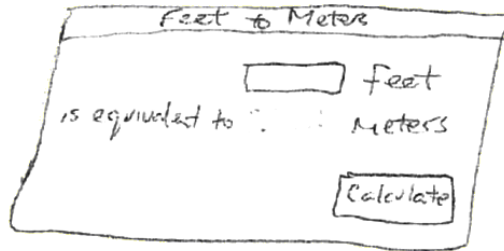 Feet to Meters
feet
is equivalent to Meters
Calculate